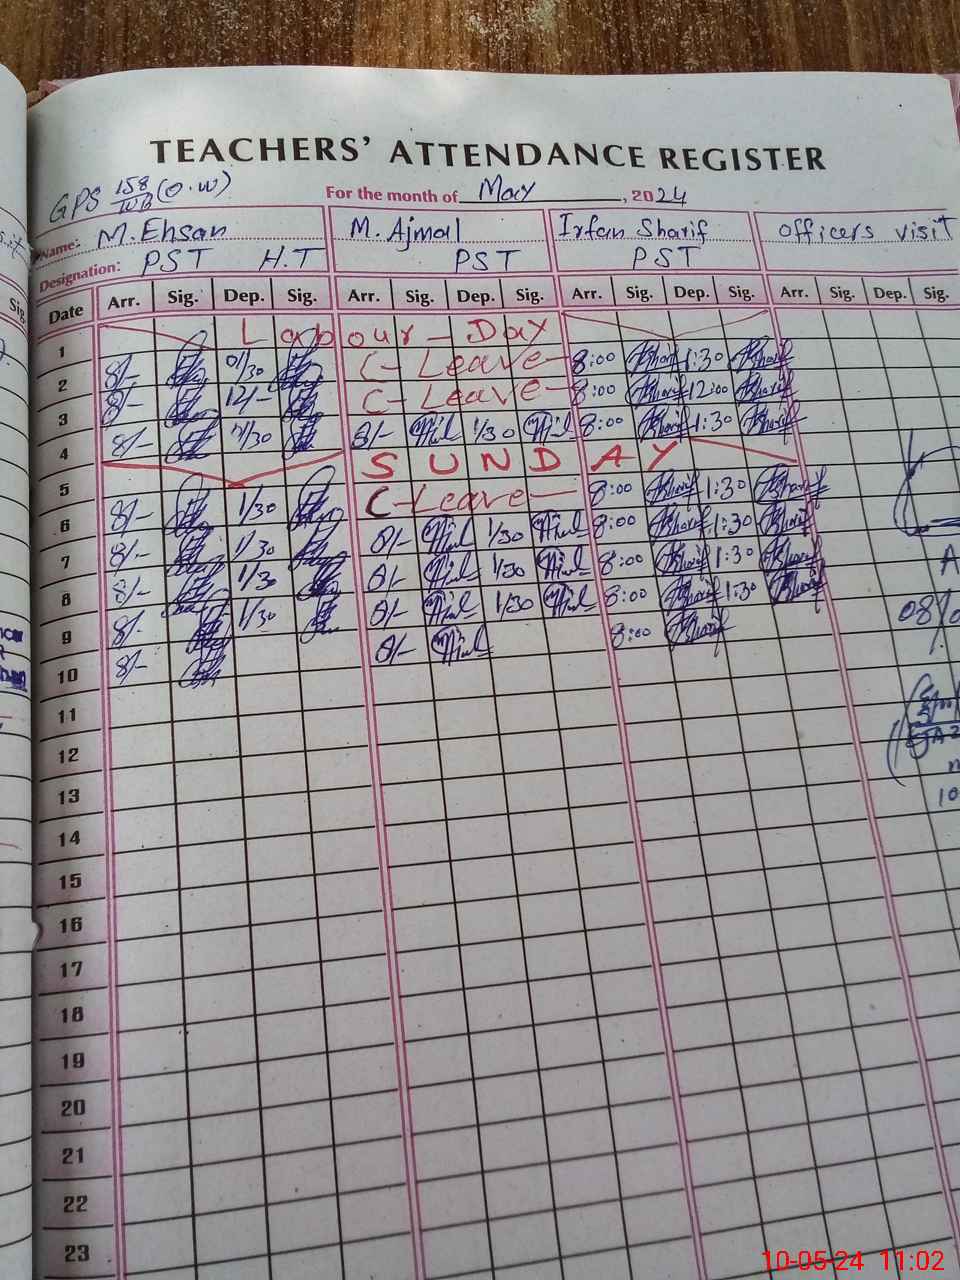 TEACHERS' ATTENDANCE REGISTER
GPS 158/WB (O.W) For the month of May, 2024
Name: M. Ehsan M. Ajmal Irfan Sharif officers visit
Designation: PST H.T PST PST
Date Arr. Sig. Dep. Sig. Arr. Sig. Dep. Sig. Arr. Sig. Dep. Sig. Arr. Sig. Dep. Sig.
1 Labour - Day
2 8/- 01/30 C-Leave- 8:00 1:30
3 8/- 12/- C-Leave- 8:00 12:00
4 8/- 1/30 8/- 1/30 8:00 1:30
5 SUNDAY
6 8/- 1/30 C-Leave- 8:00 1:30
7 8/- 1/30 8/- 1/30 8:00 1:30
8 8/- 1/30 8/- 1/30 8:00 1:30
9 8/- 1/30 8/- 1/30 8:00 1:30
10 8/- 8/- 8:00
11
12
13
14
15
16
17
18
19
20
21
22
23
10-05-24 11:02